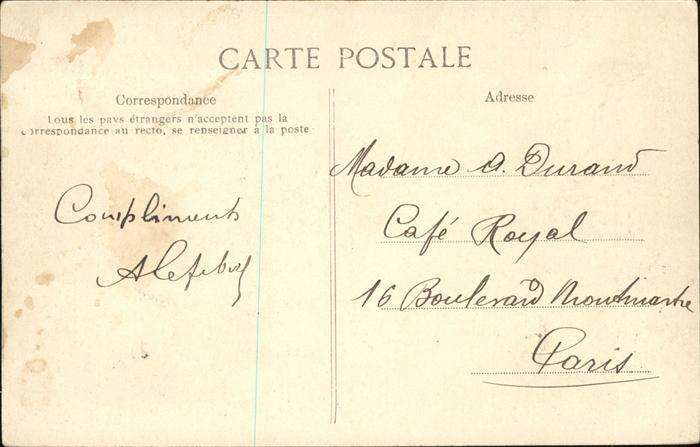 CARTE POSTALE
Correspondance
Tous les pays étrangers n'acceptent pas la
correspondance au recto, se renseigner à la poste
Compliments
ALefeb
Adresse
Madame A. Durand
Café Royal
16 Boulevard Montmartre
Paris